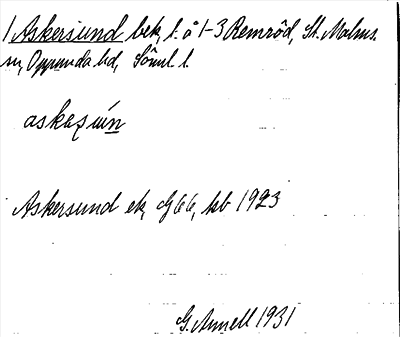 1 Askersund bek, l. å 1-3 Remröd, St. Malms
sn, Oppunda hd, Söml. l.
askaʂún
Askersund ek, G 66, kb 1923
G. Annell 1931